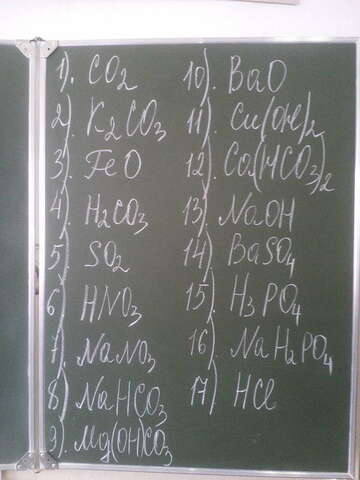 1). CO2
2). K2CO3
3). FeO
4). H2CO3
5). SO2
6). HNO3
7). NaNO3
8) NaHCO3
9). Mg(OH)CO3
10). BaO
11). Cu(OH)2
12). Ca(HCO3)2
13) NaOH
14) BaSO4
15) H3PO4
16) NaH2PO4
17) HCl